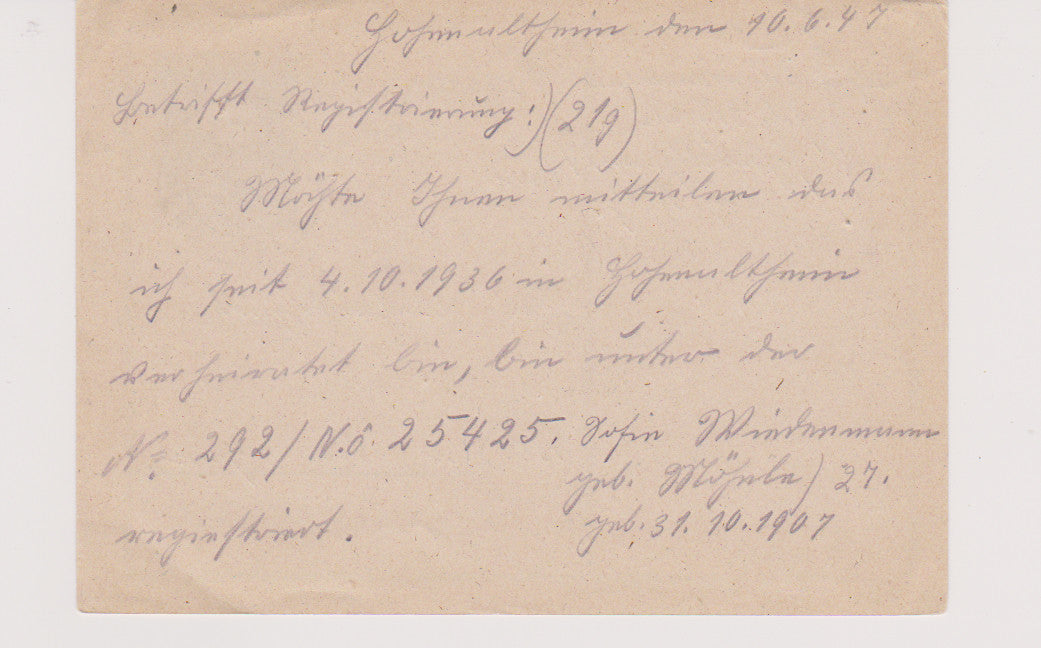 Hohenaltheim den 10.6.47
Betrifft Registrierung:) (21g)
Möchte Ihnen mitteilen das
ich seit 4.10.1936 in Hohenaltheim
verheiratet bin, bin unter der
No 292/N.ö. 25425. Sofie Wiedenmann
geb. 27.
regiestriert. geb. 31.10.1907